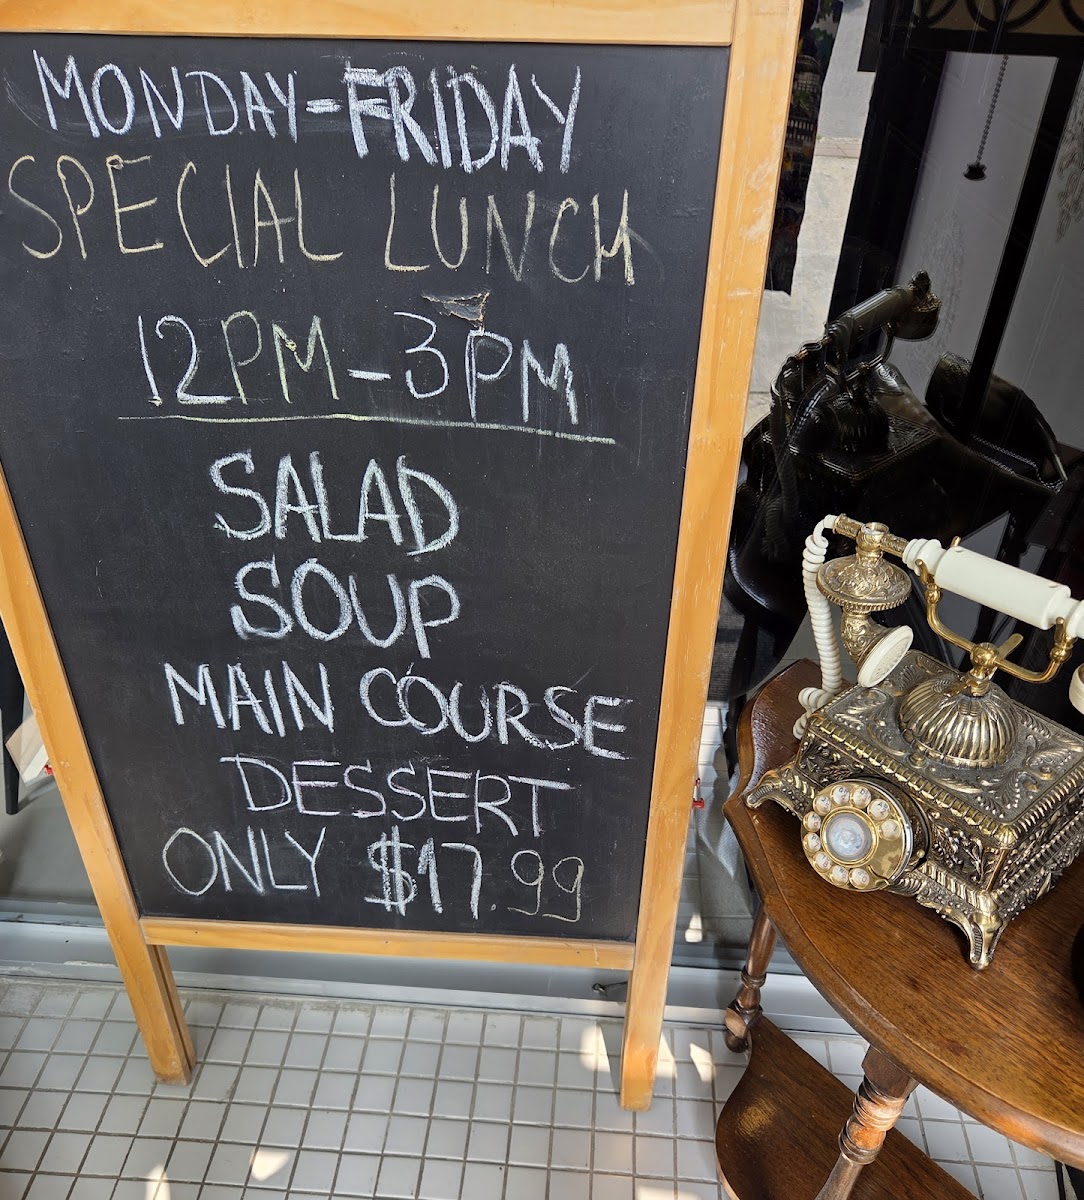 MONDAY-FRIDAY
SPECIAL LUNCH
12PM-3PM
SALAD
SOUP
MAIN COURSE
DESSERT
ONLY $17.99